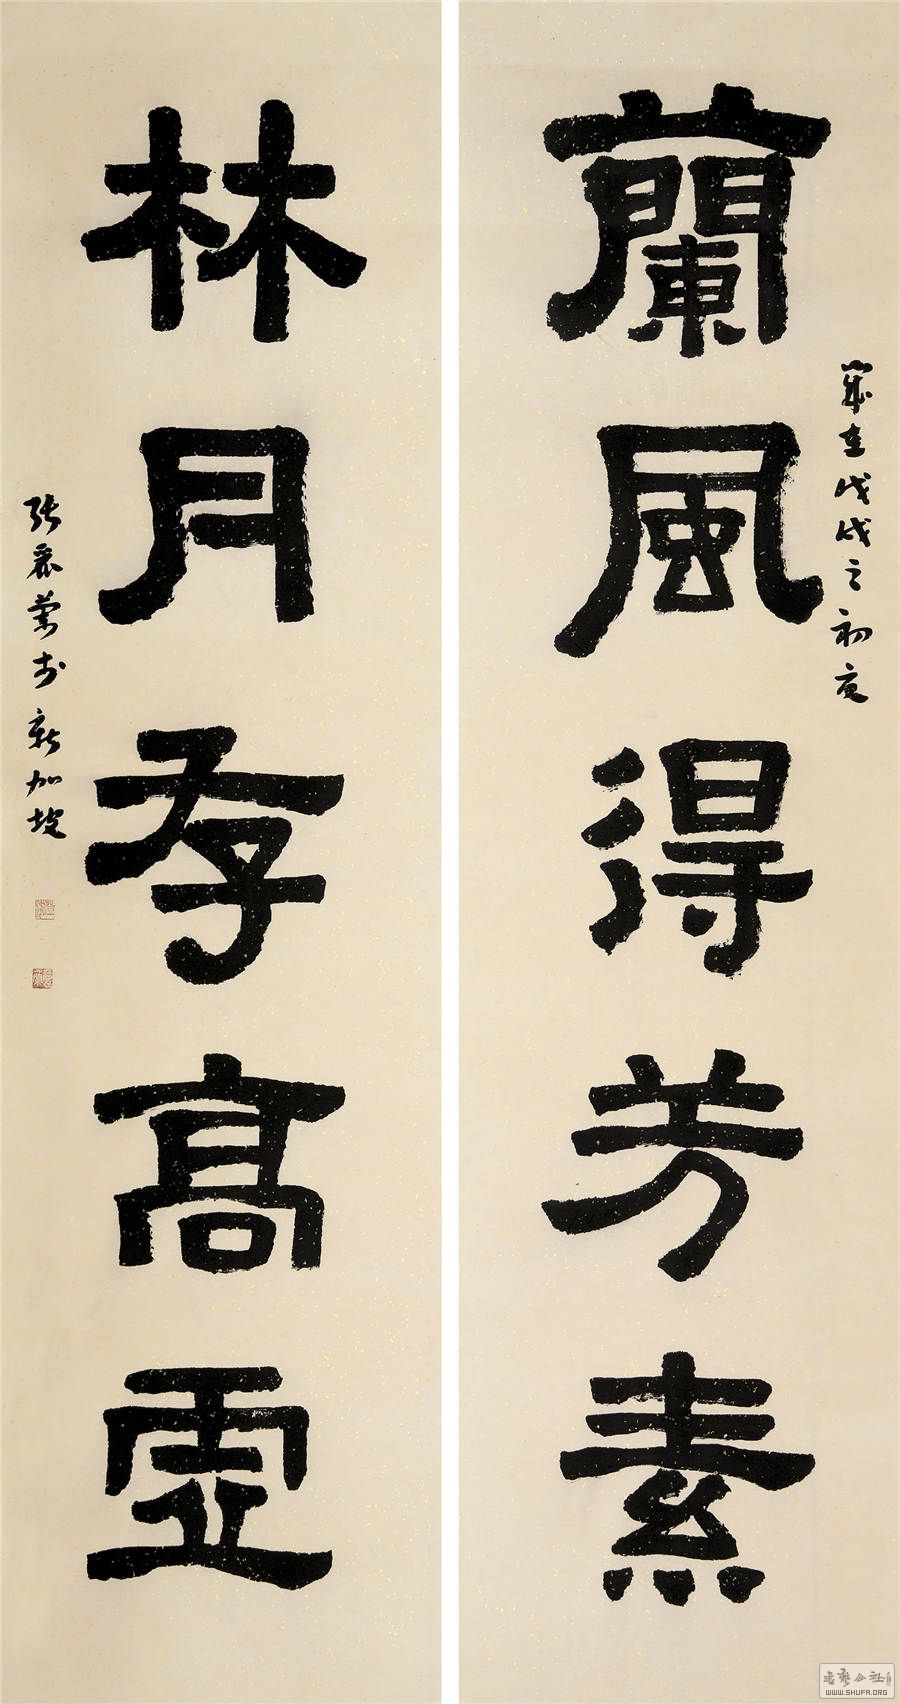 蘭風得芳素
歲在戊戌之初夏
林月存高虛
張於新加坡
WWW.SHUFA.ORG